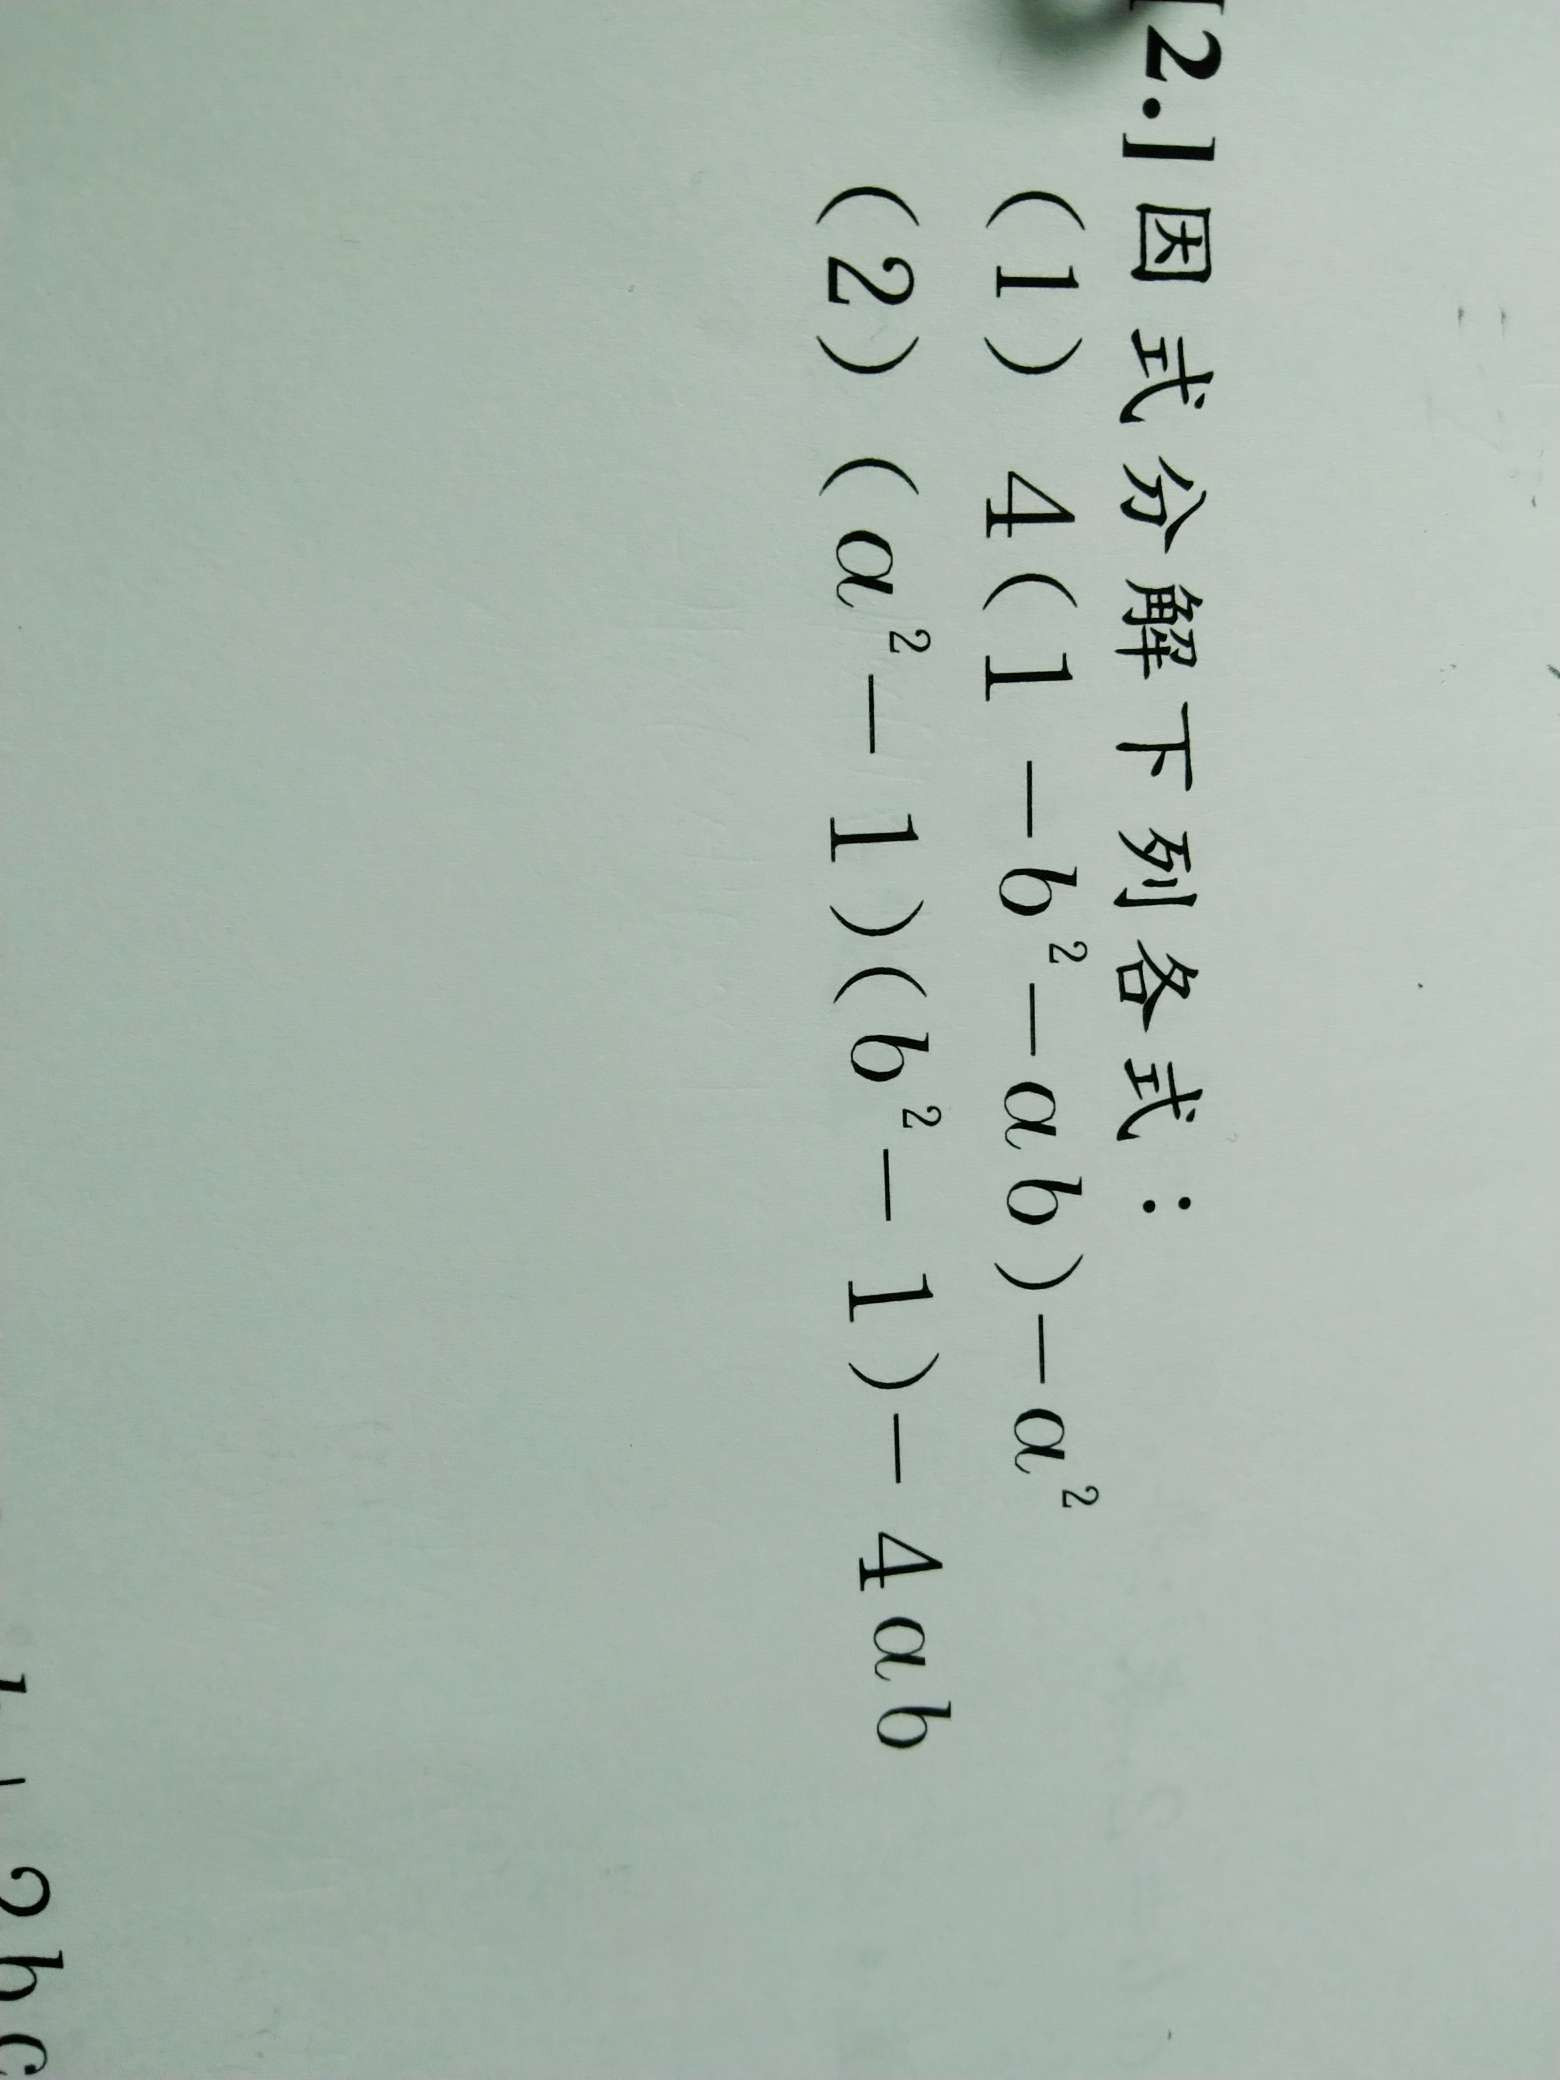 [2.]因式分解下列各式：
(1) 4(1-b²-ab)-a²
(2) (a²-1)(b²-1)-4ab
2bc